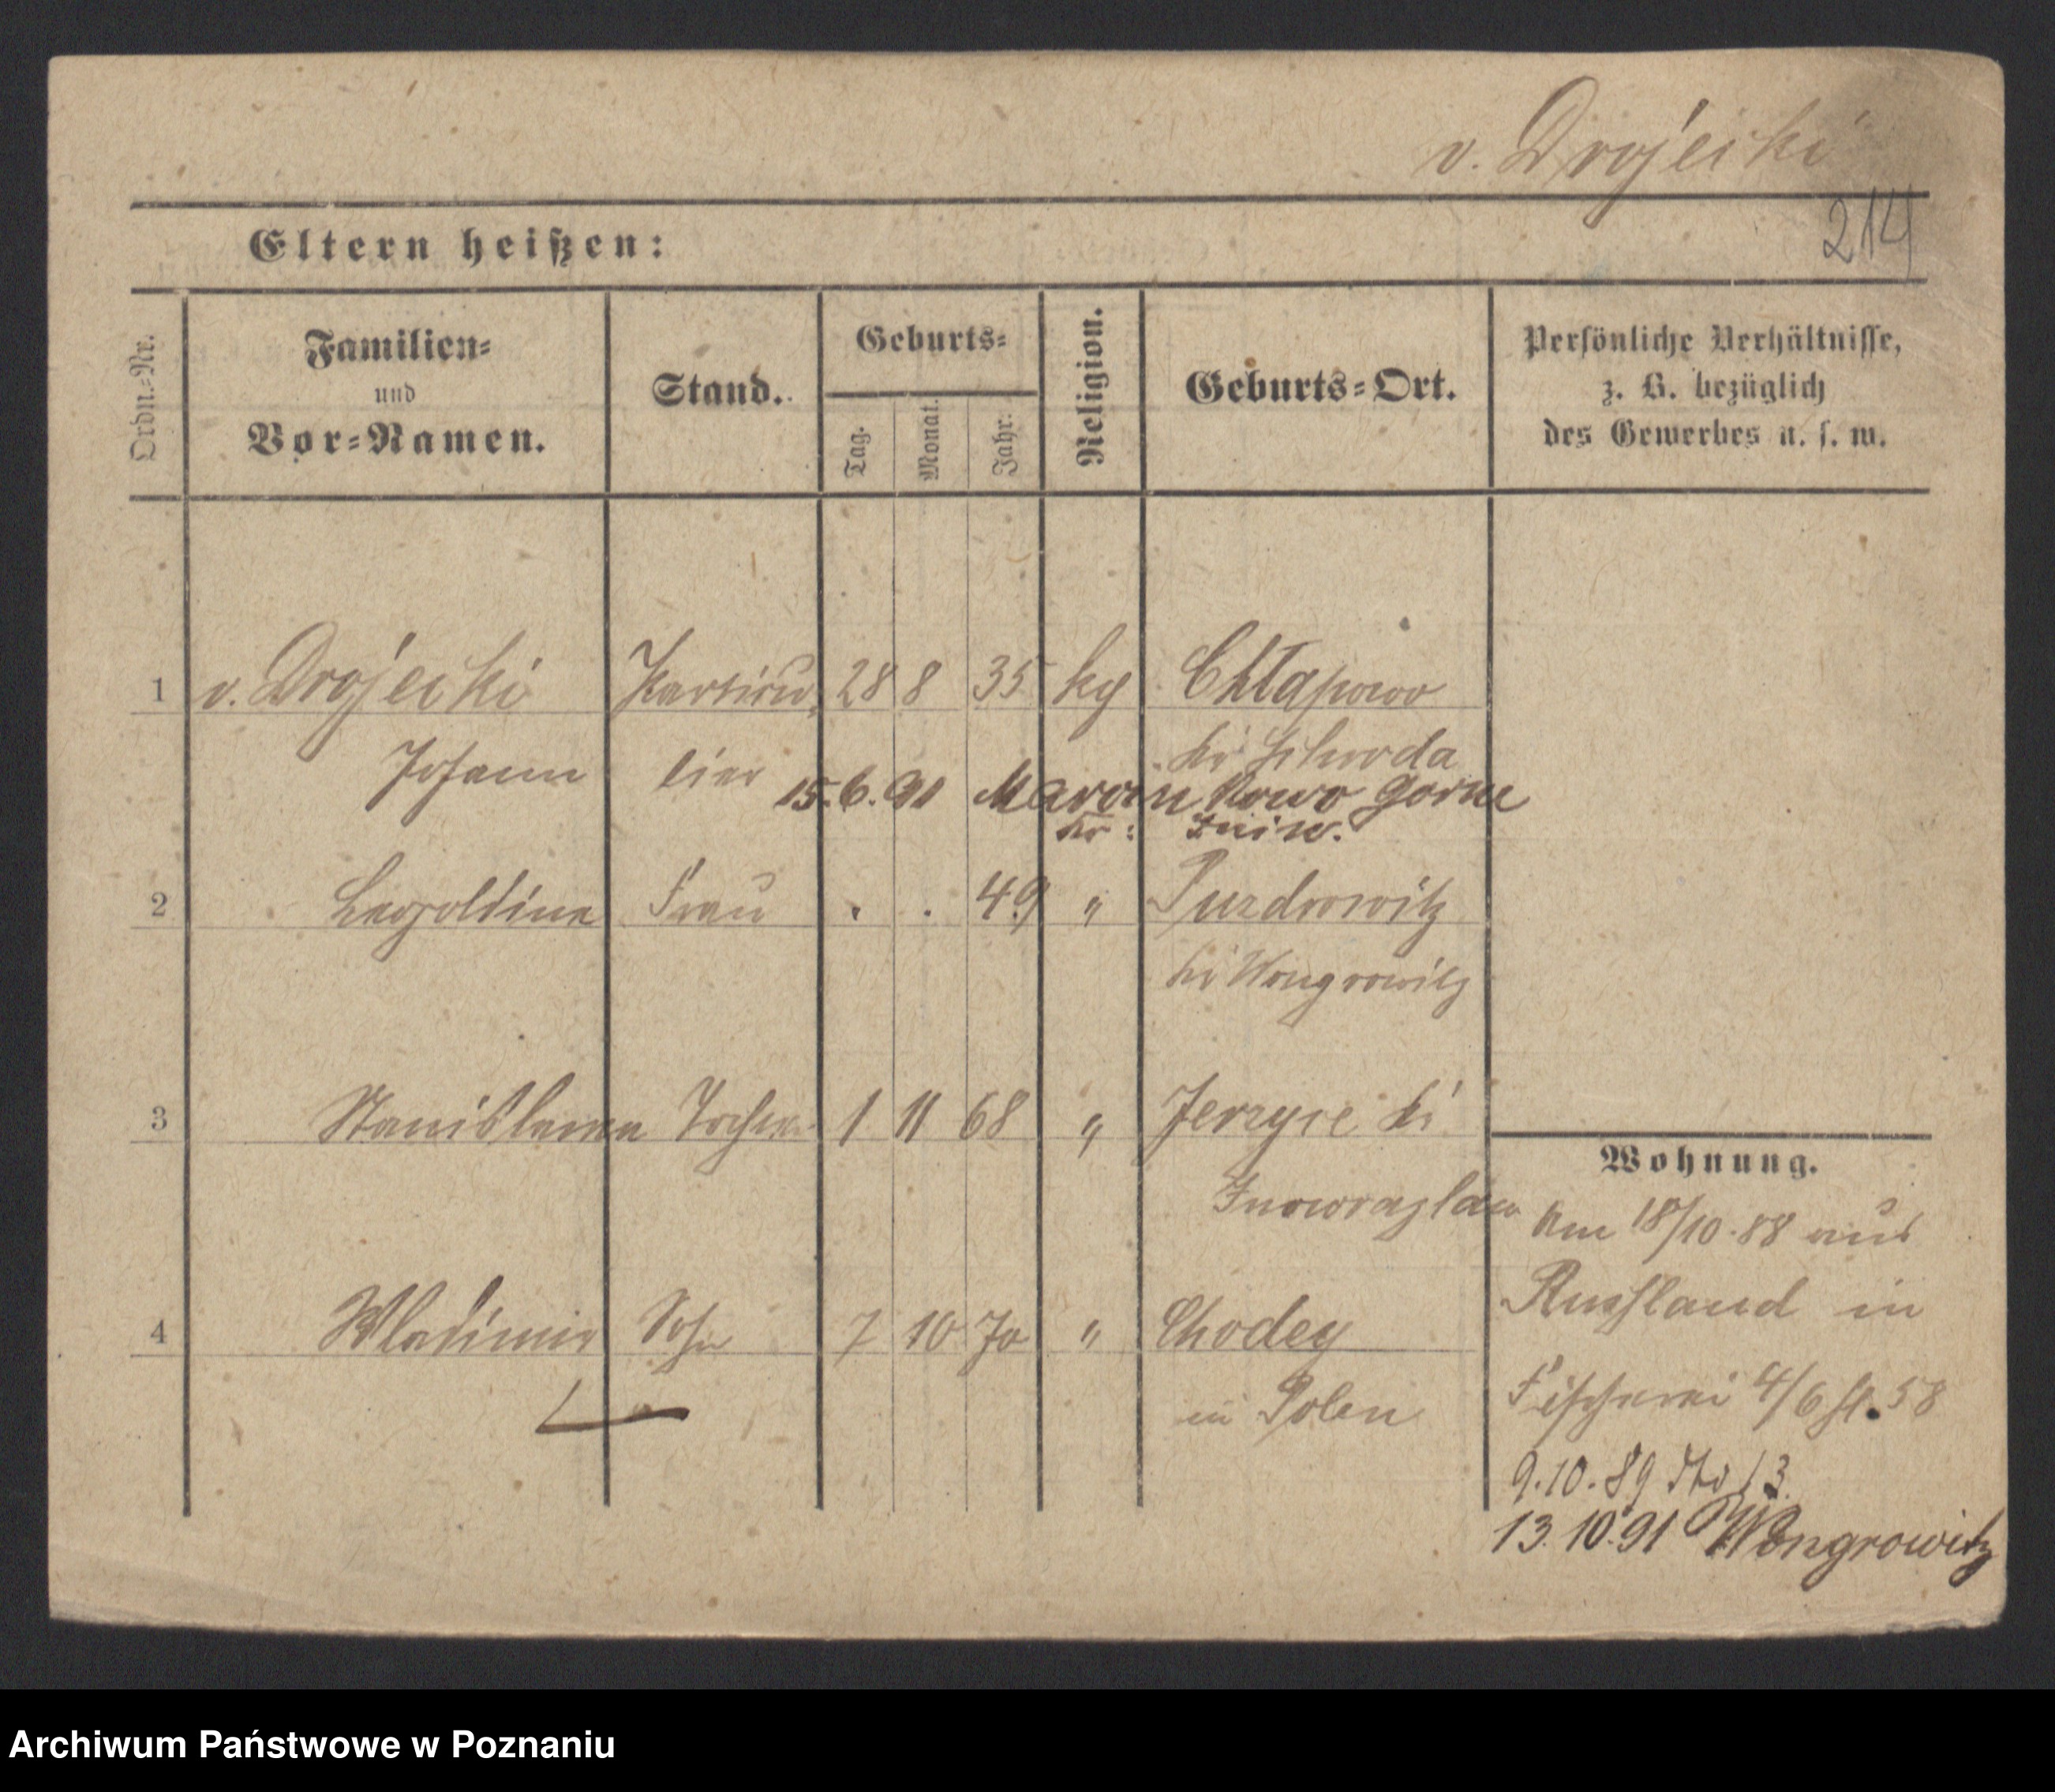 v. Drojecki
214
Eltern heißen:
Ordn.-Nr.
Familien-
und
Vor-Namen.
Stand.
Geburts-
Tag.
Monat.
Jahr.
Religion.
Geburts-Ort.
Persönliche Verhältnisse,
z. B. bezüglich
des Gewerbes u. s. w.
1 v. Drojecki Particu- 28 8 35 kg Chłapowo
Johann lier Kr Schroda
15.6.91 Marcinkowo Gorne
Kr: Inow.
2 Leopoldine Frau . . 49 " Purdrowitz
Kr Wongrowitz
3 Stanislawa Tochter 1 11 68 " Jerzyce Kr
Inowrazlaw
4 Wladimir Sohn 7 10 70 " Chodey
in Polen
Wohnung.
Am 18/10.88 aus
Russland in
Fischerei 4/6 58
9.10.89 13.
13.10.91 Wongrowitz
Archiwum Państwowe w Poznaniu